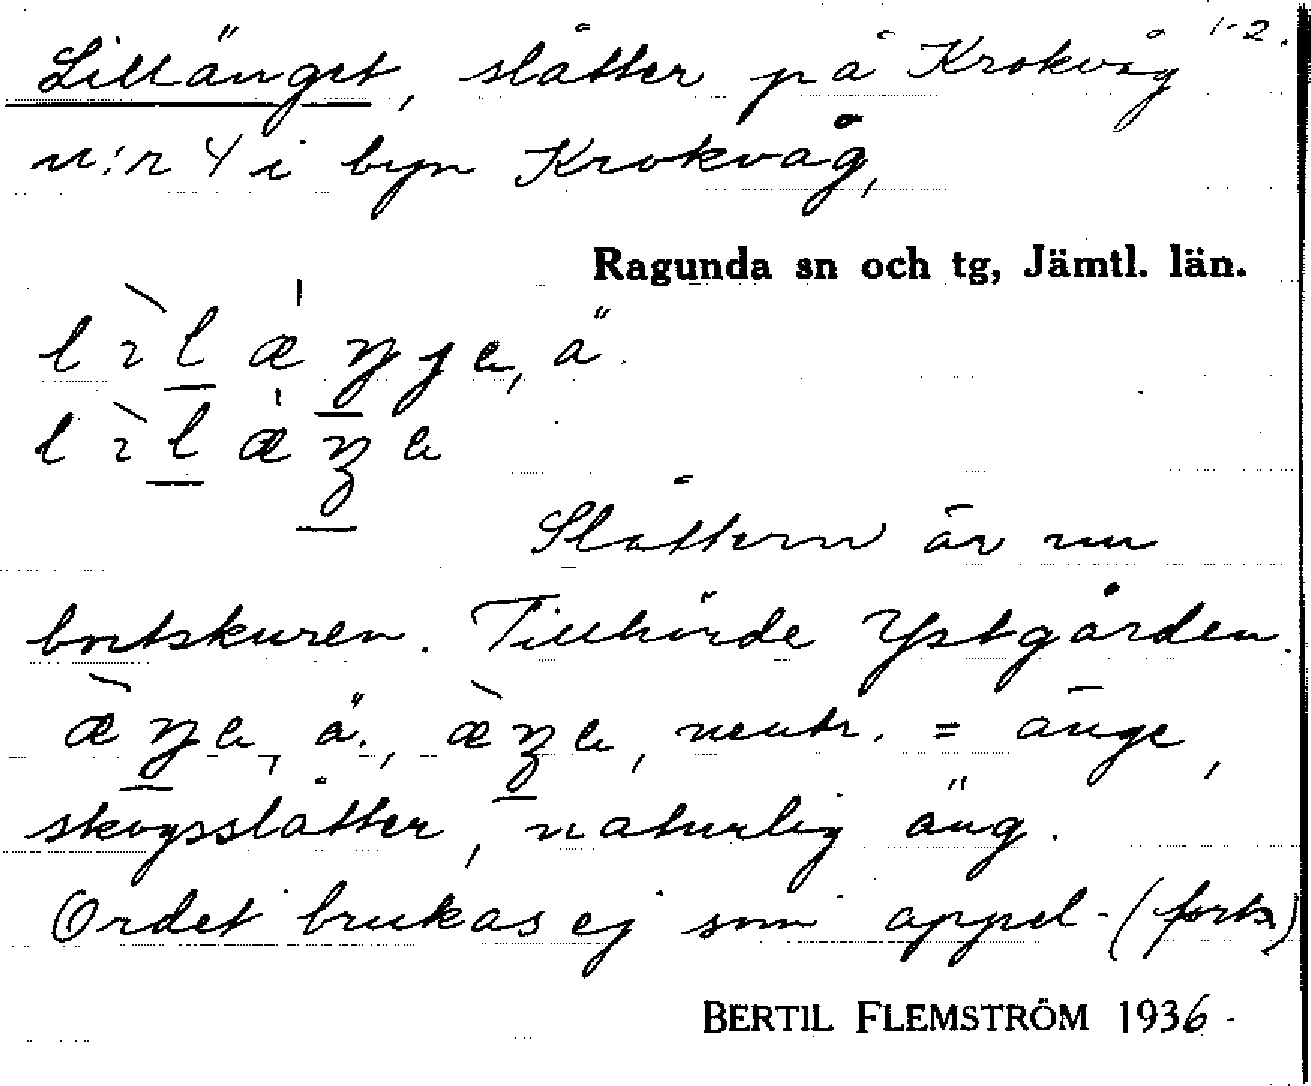 1-2.
Lillänget, slåtter på Krokvåg
n:r 4 i byn Krokvåg,
Ragunda sn och tg, Jämtl. län.
Slåttern är nu
bortskuren. Tillhörde Ystgården.
neutr. = änge,
skogsslåtter, naturlig äng.
Ordet brukas ej som appel- (forts)
BERTIL FLEMSTRÖM 1936